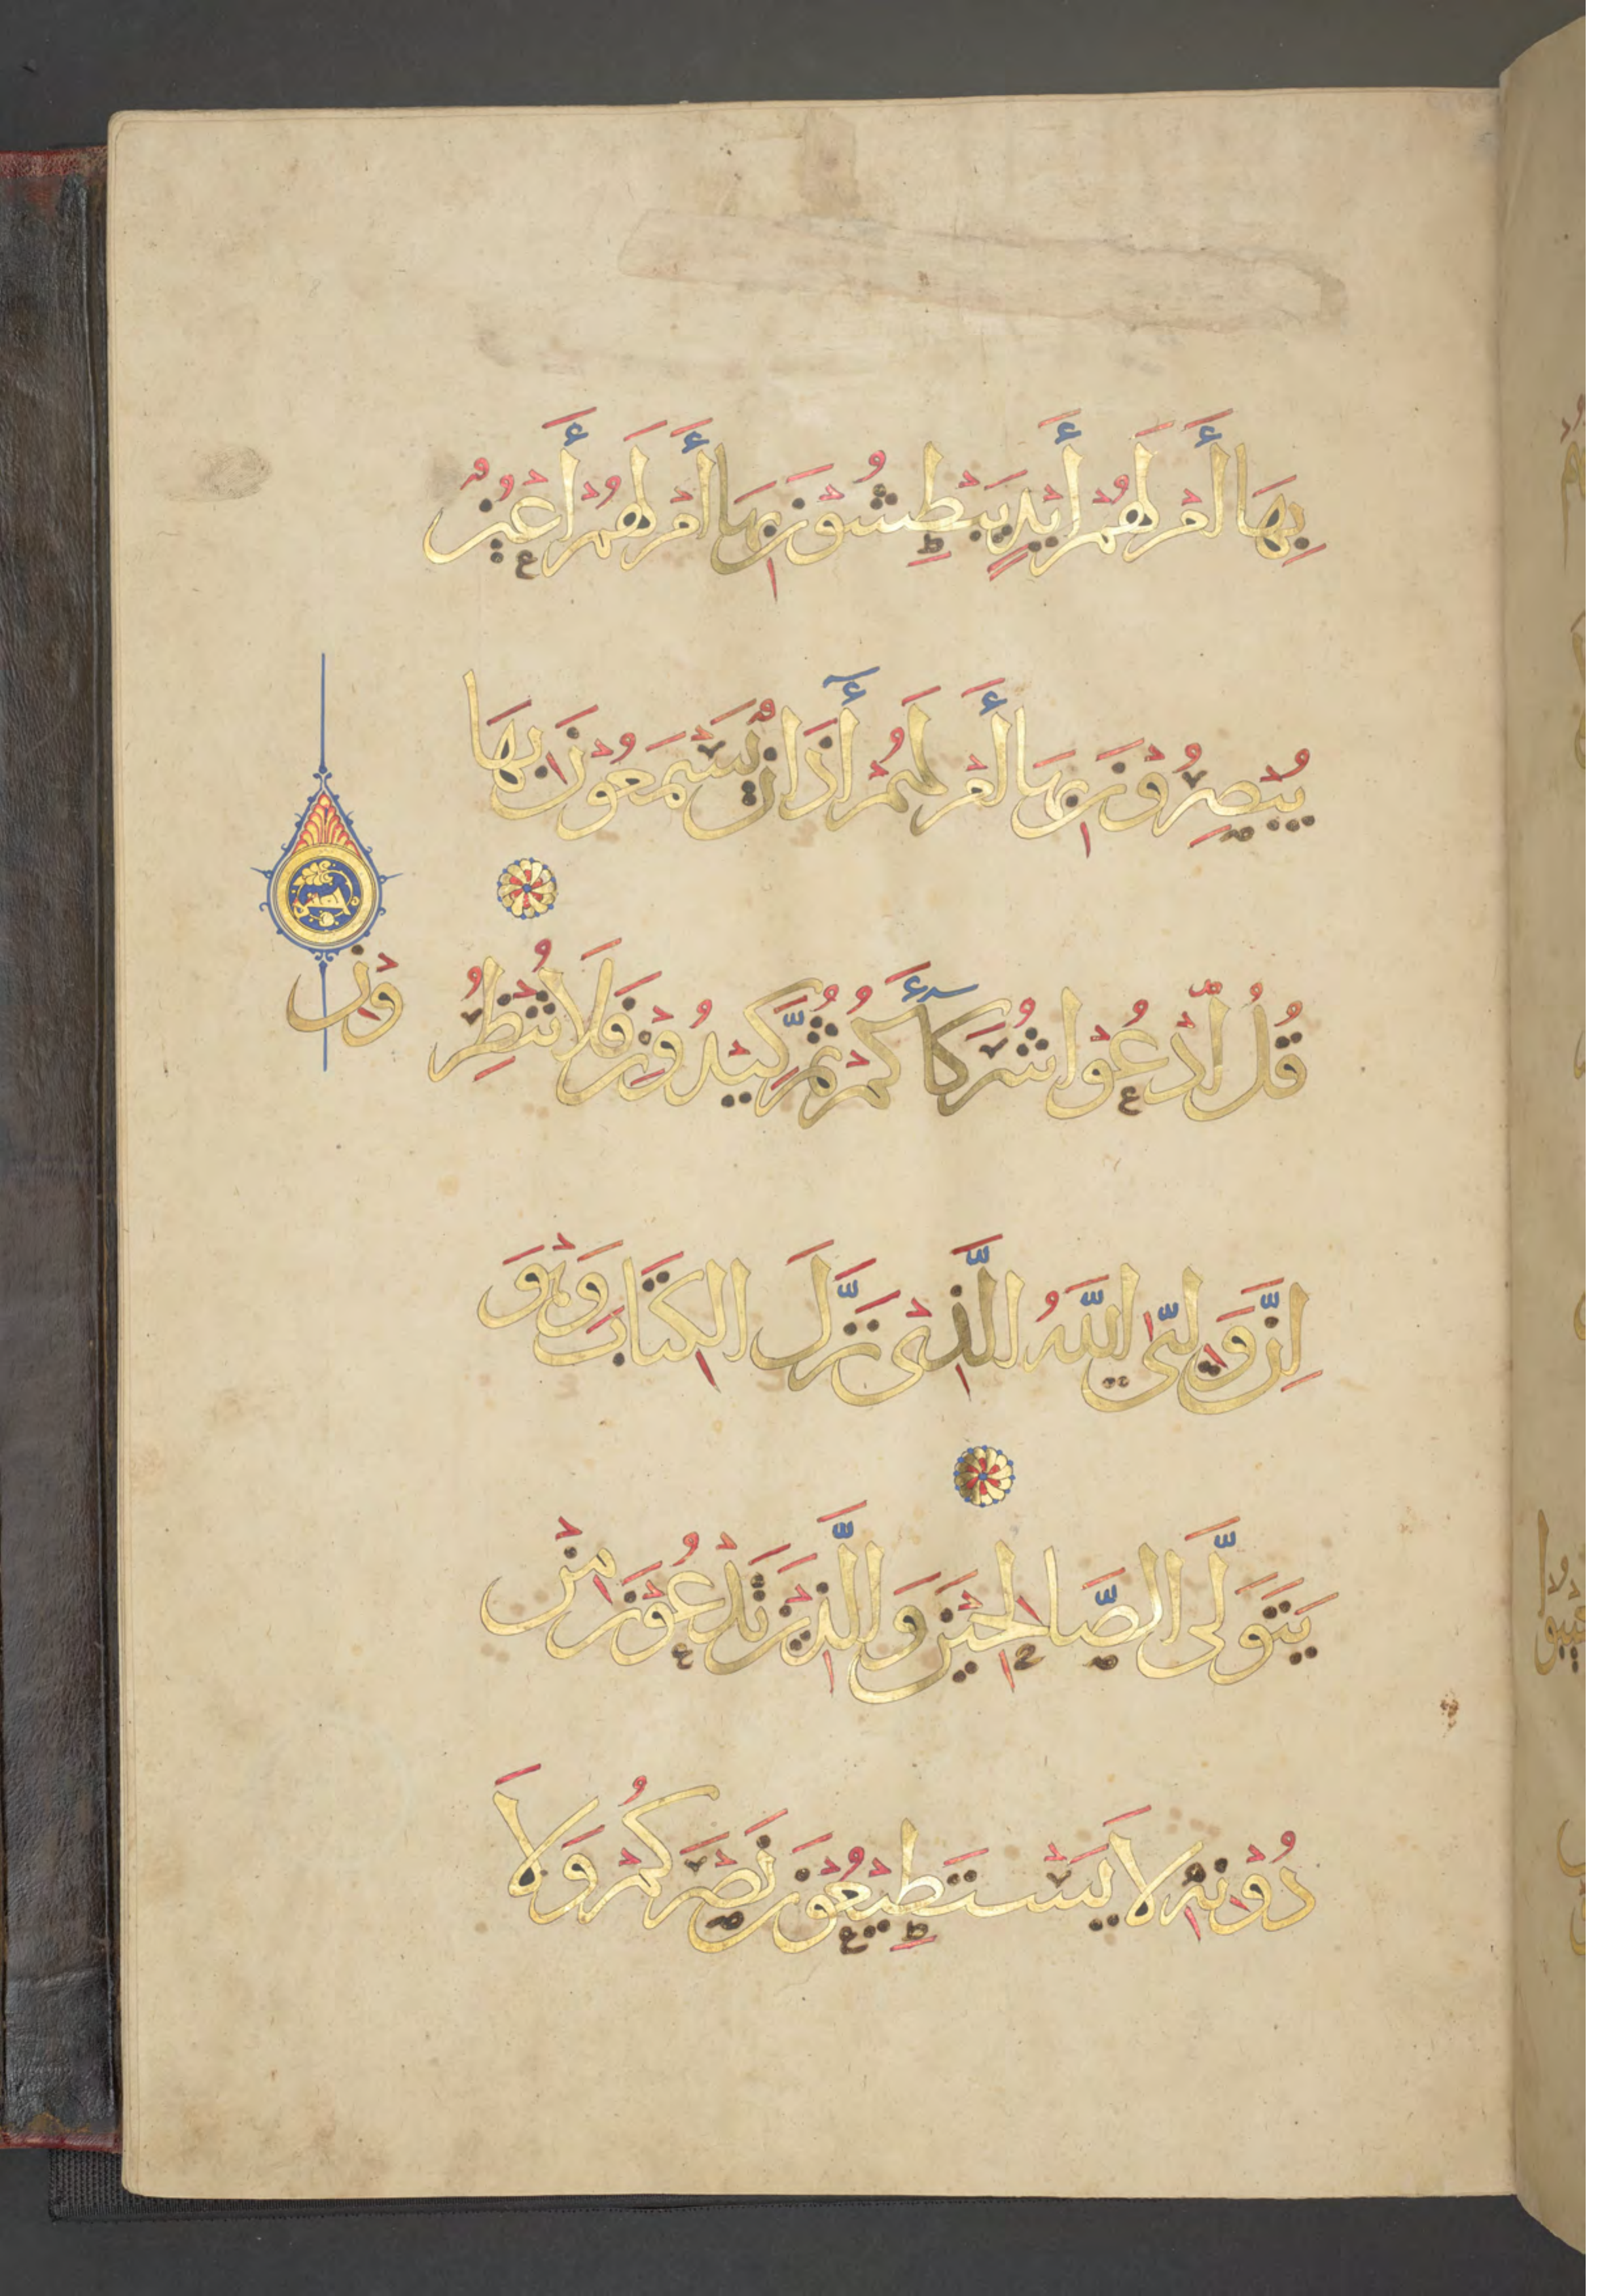 بِهَا أَمْ لَهُمْ أَيْدٍ يَبْطِشُوْنَ بِهَا أَمْ لَهُمْ أَعْيُنٌ
يُبْصِرُوْنَ بِهَا أَمْ لَهُمْ أٓذَانٌ يَسْمَعُوْنَ بِهَا
قُلُ ادْعُوْا شُرَكَآءَكُمْ ثُمَّ كِيْدُوْنِ فَلَا تُنْظِرُ
وْنِ
اِنَّ وَلِيِّىَ اللَّهُ الَّذِىْ نَزَّلَ الكِتَابَ وَهْوَ
يَتَوَلَّى الصَّالِحِيْنَ وَالَّذِيْنَ تَدْعُوْنَ مِنْ
دُوْنِهِ لَا يَسْتَطِيْعُوْنَ نَصْرَكُمْ وَلَا